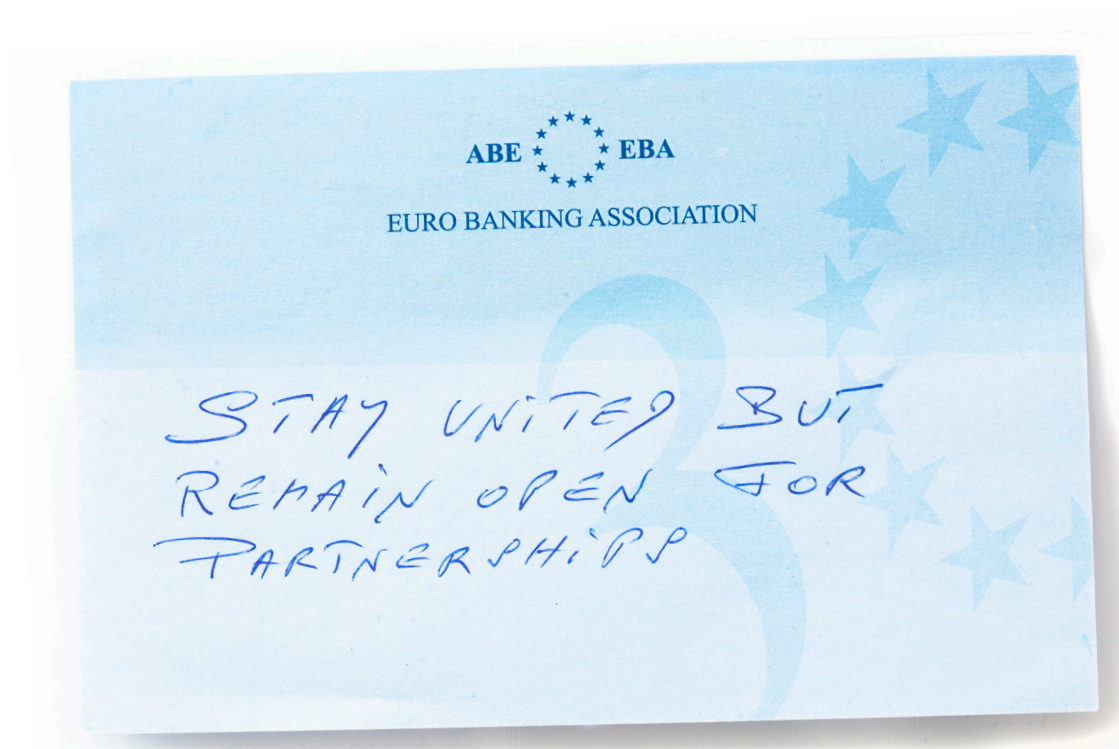 ABE EBA
EURO BANKING ASSOCIATION
STAY UNITED BUT
REMAIN OPEN FOR
PARTNERSHIPS